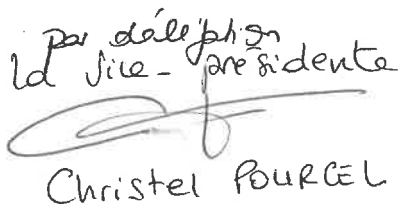 par délégation
la vice-présidente
Christel POURCEL